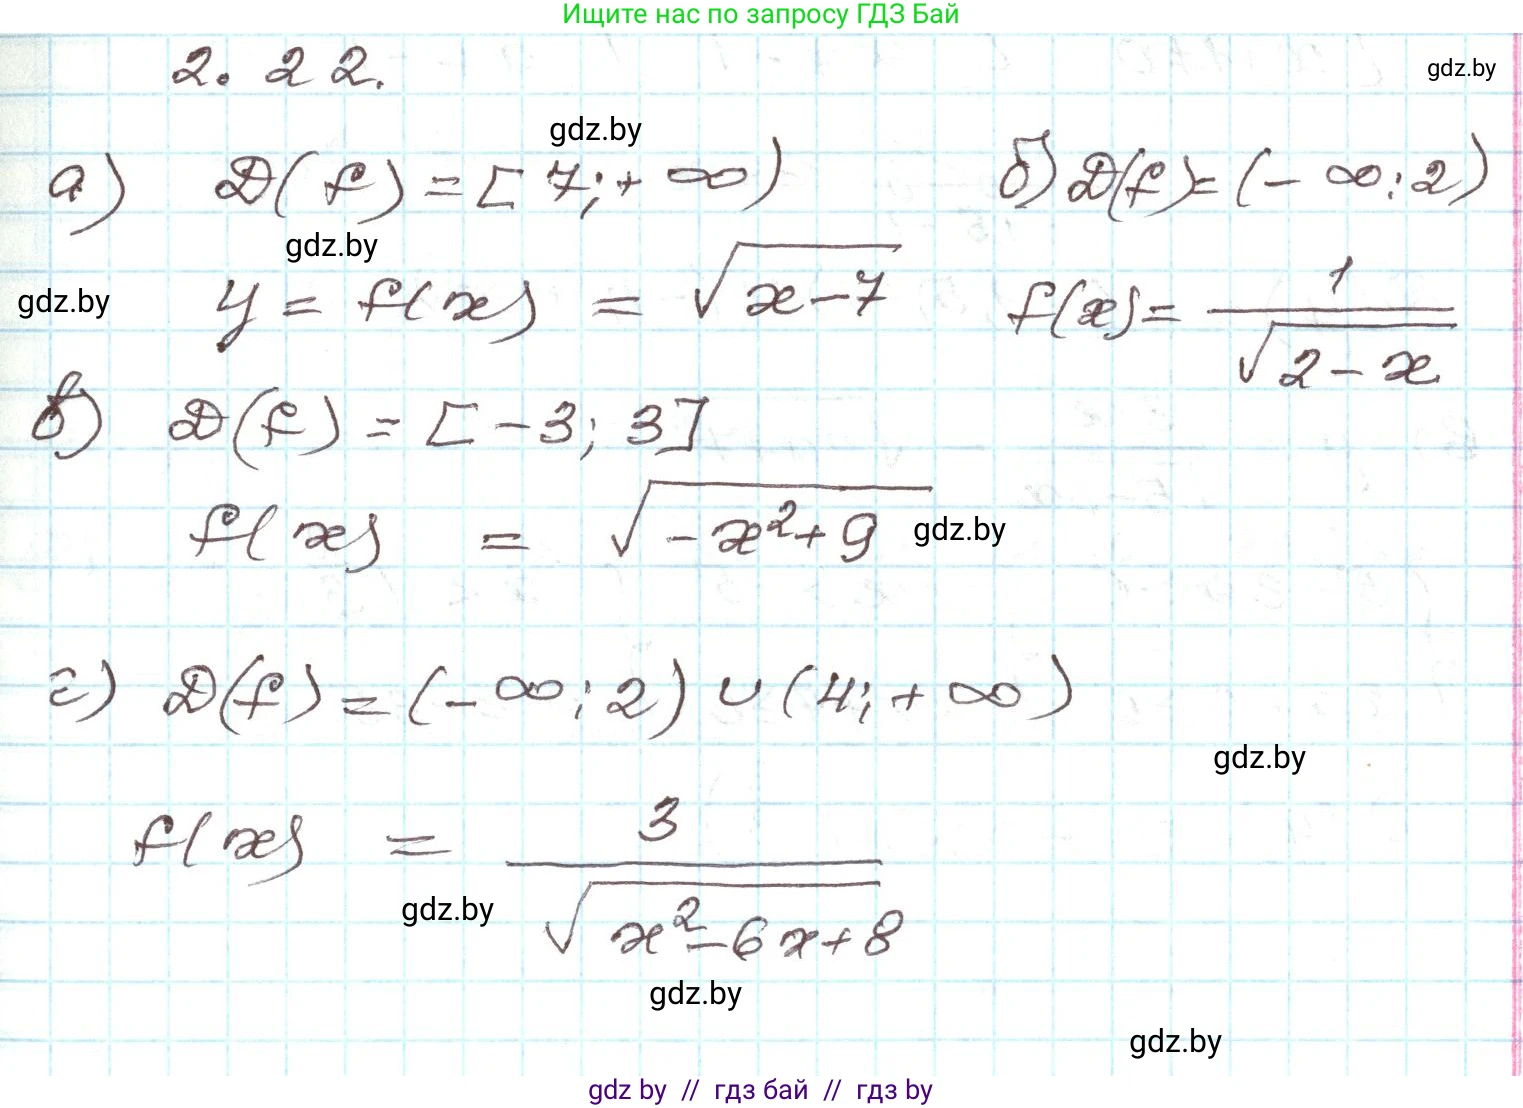 Ищите нас по запросу ГДЗ Бай
2.22.
gdz.by
gdz.by
а) D(f) = [7; +∞)
б) D(f) = (-∞; 2)
gdz.by
gdz.by
y = f(x) = √(x-7)
f(x) = 1/√(2-x)
в) D(f) = [-3; 3]
f(x) = √(-x²+9)
gdz.by
г) D(f) = (-∞; 2) ∪ (4; +∞)
gdz.by
f(x) = 3/√(x²-6x+8)
gdz.by
gdz.by
gdz.by
gdz by // гдз бай // гдз by